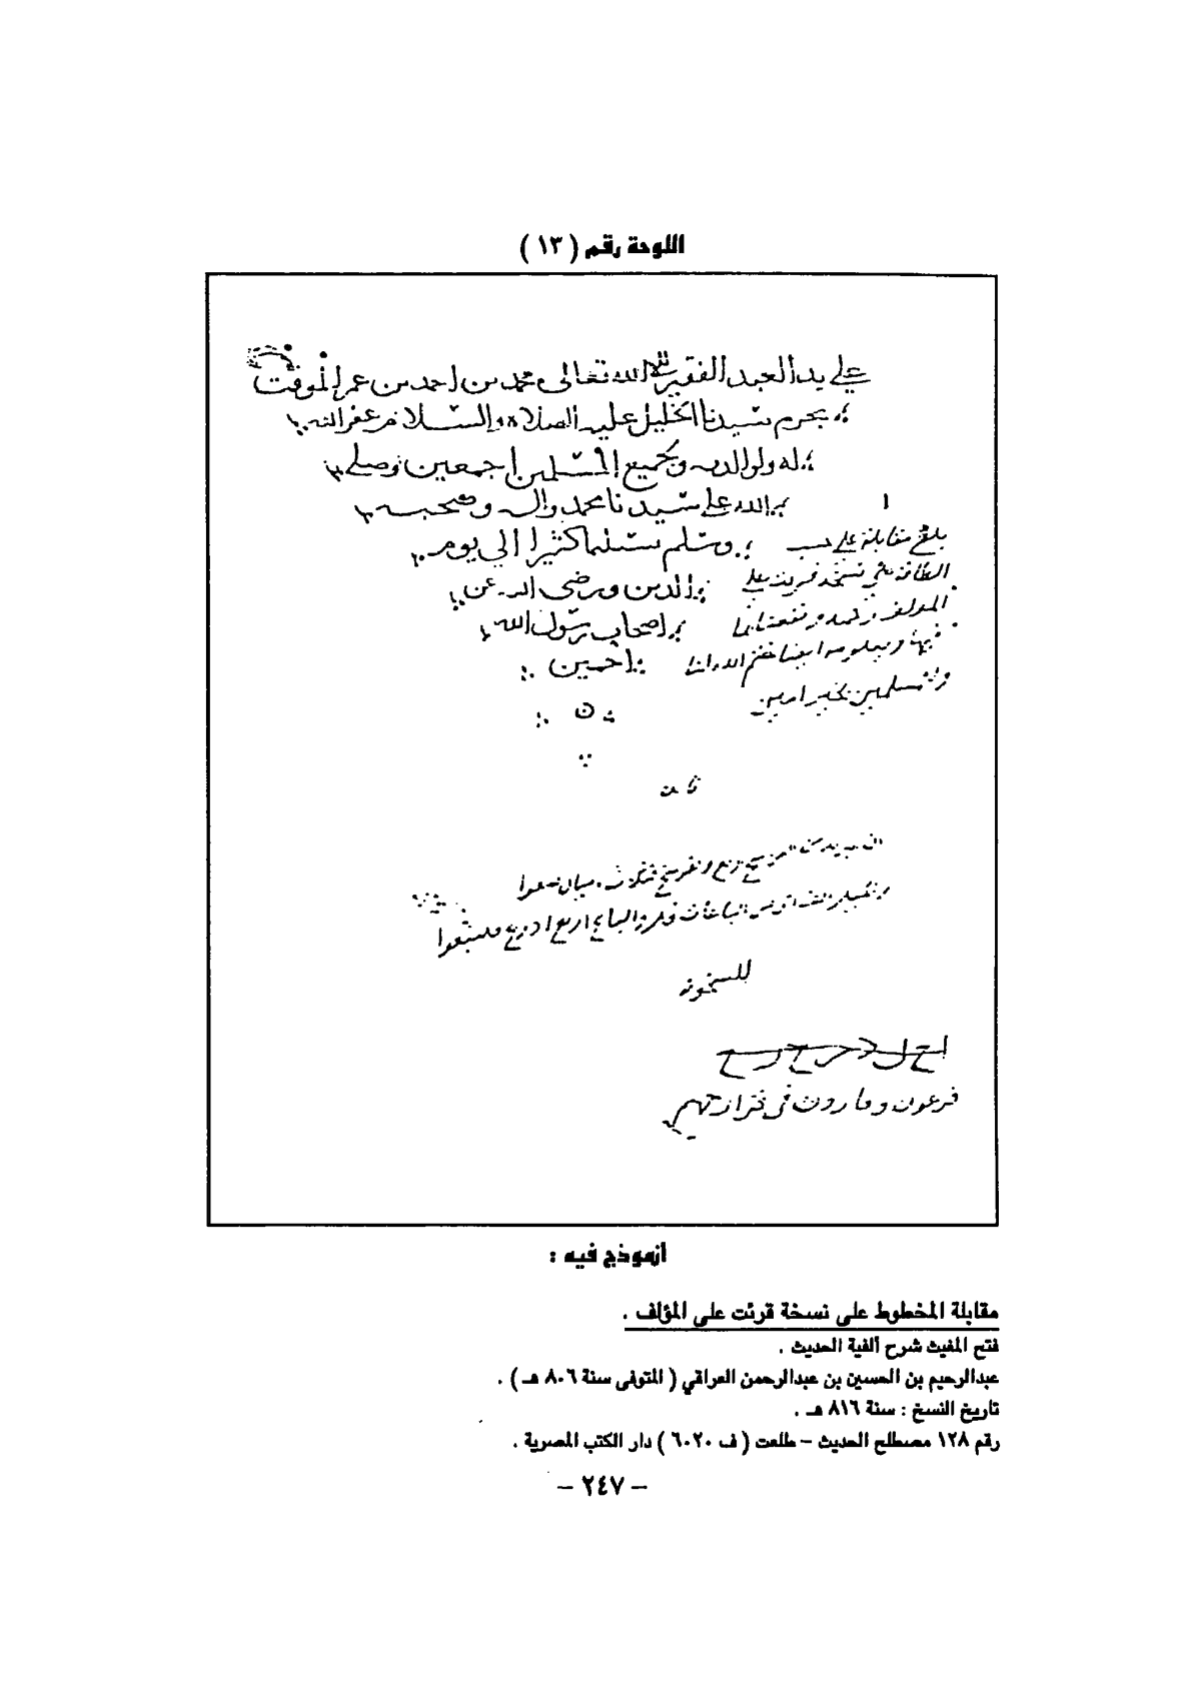 اللوحة رقم ( ١٣ )
على يد العبد الفقير الى الله تعالى محمد بن احمد بن عمر الموقت
بحرم سيدنا الخليل عليه الصلاة والسلام غفر الله
له ولوالديه ولجميع المسلمين اجمعين وصلى
الله على سيدنا محمد واله وصحبه
وسلم تسليما كثيرا الى يوم
الدين ورضى الله عن
اصحاب رسول الله
اجمعين
بلغ مقابلة على حسب
الطاقة على نسخة قريت على
المولف رحمه ونفعنا بما
فيها وبعلومه ايضا ختم الله لنا
وللمسلمين بخير امين
للسخونه
فرعون وهارون فى
أنموذج فيه :
مقابلة المخطوط على نسخة قرئت على المؤلف .
فتح المغيث شرح ألفية الحديث .
عبدالرحيم بن الحسين بن عبدالرحمن العراقي ( المتوفى سنة ٨٠٦ هـ ) .
تاريخ النسخ : سنة ٨١٦ هـ .
رقم ١٢٨ مصطلح الحديث – طلعت ( ف ٦٠٢٠ ) دار الكتب المصرية .
– ٢٤٧ –